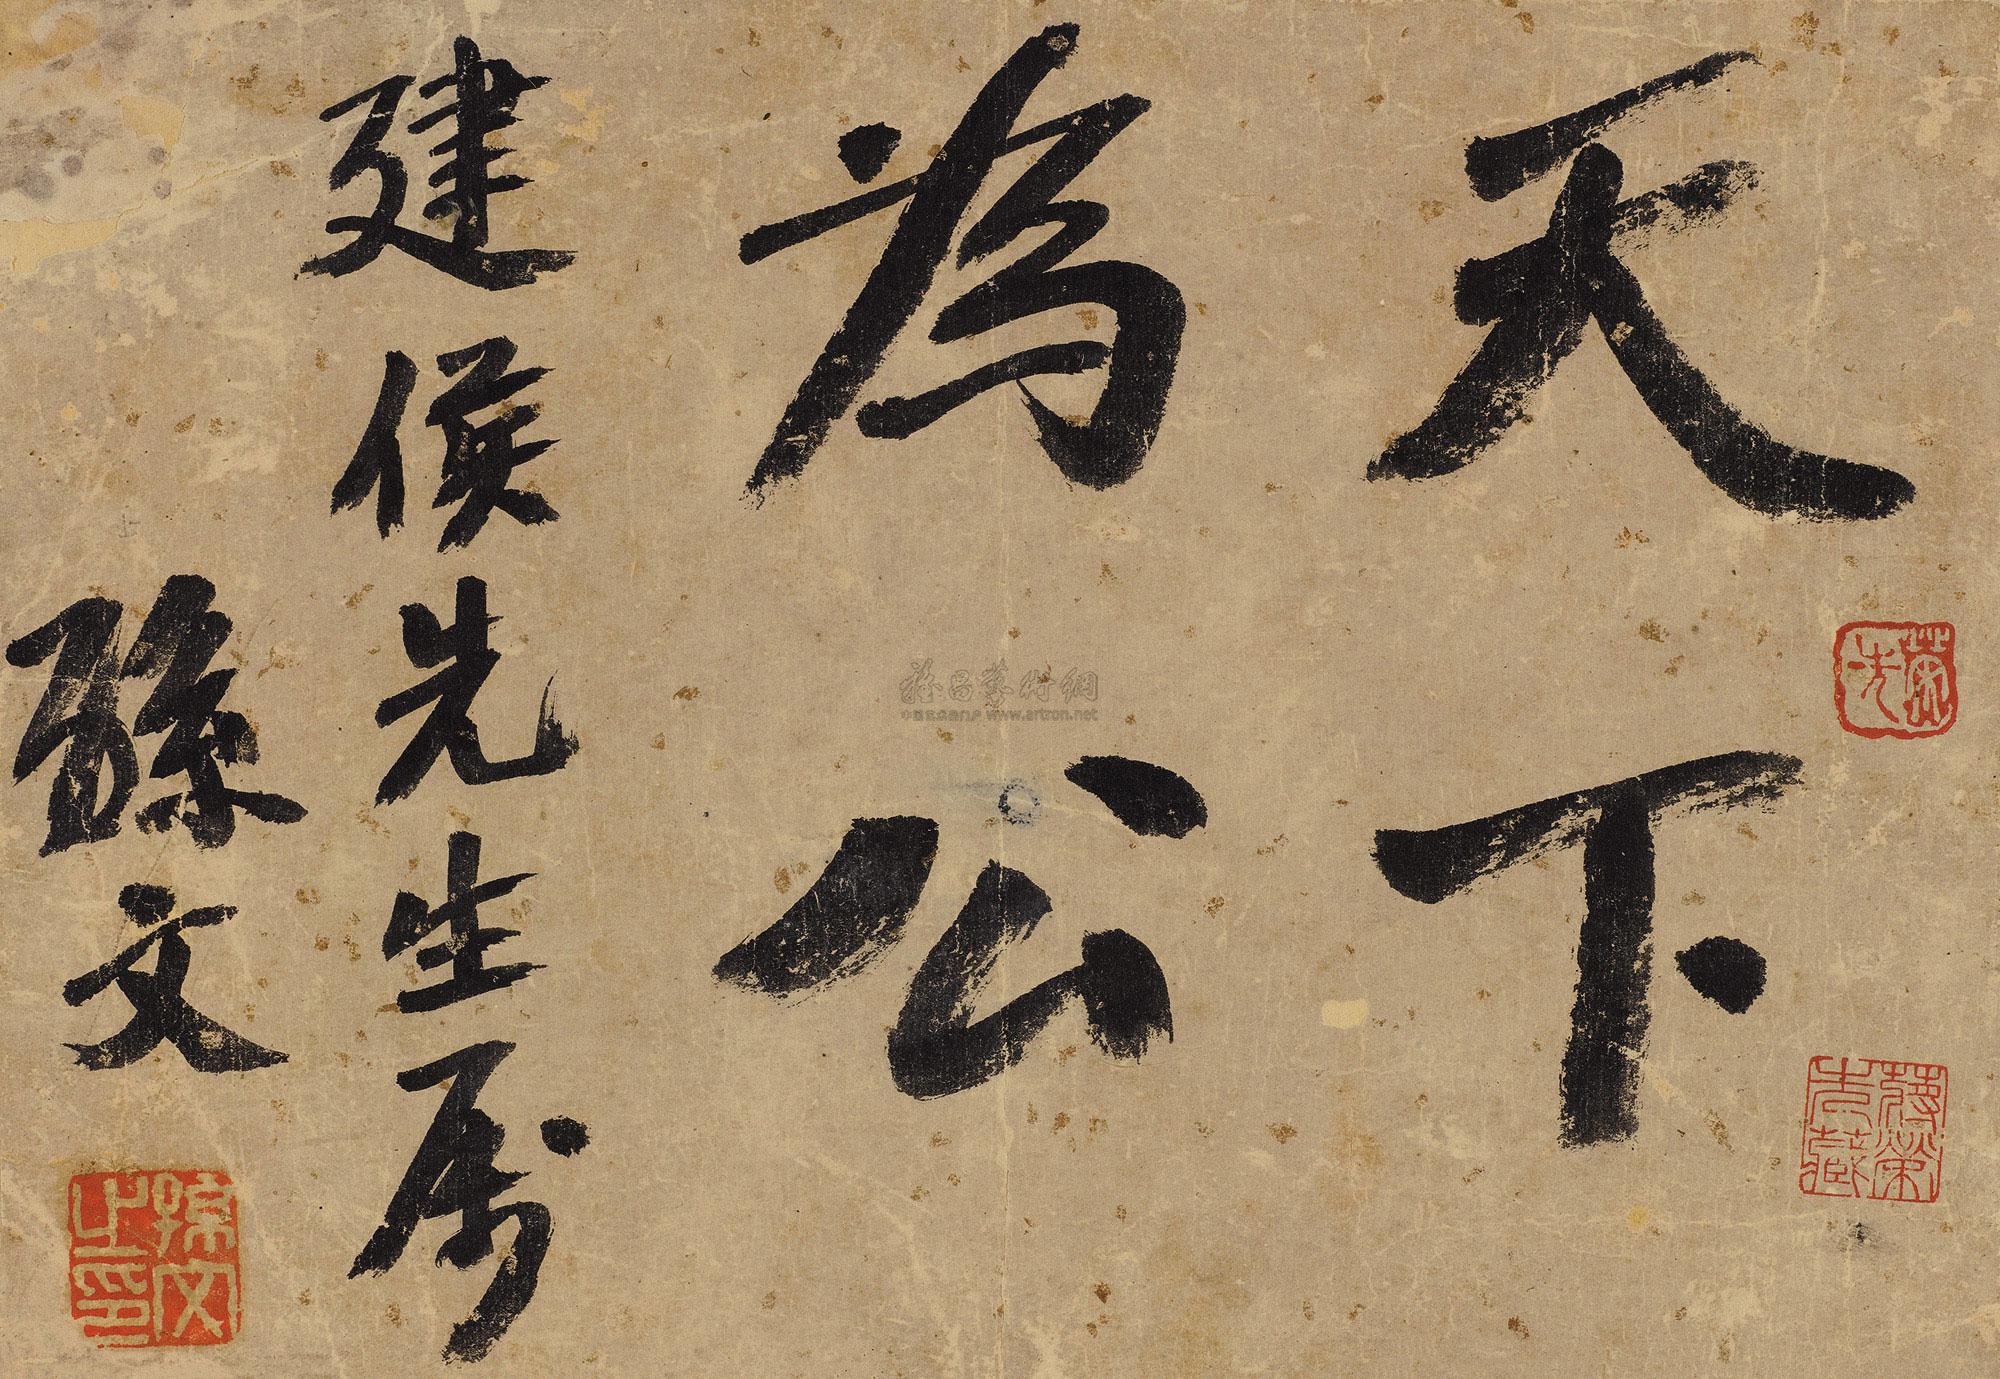 天下
為公
建侯先生属
孫文
孫文之印
www.artron.net